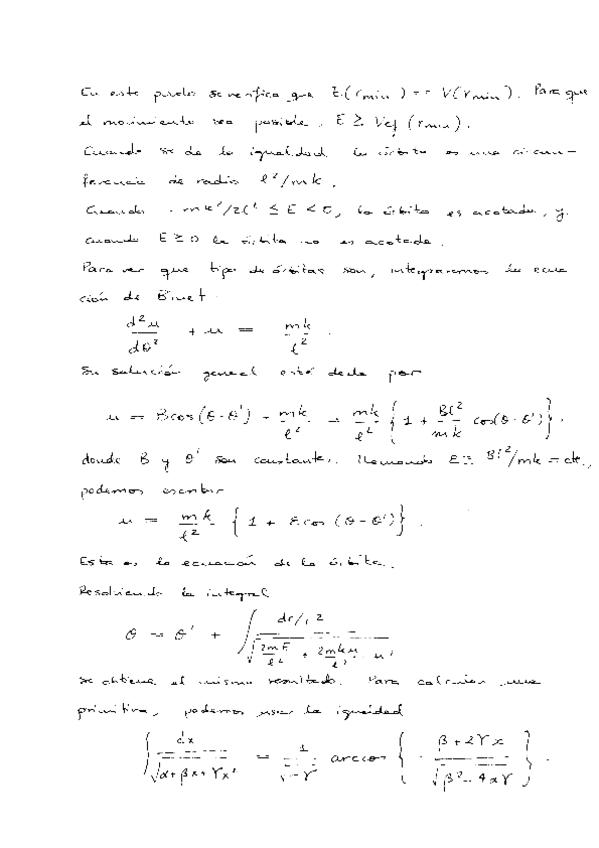 En este punto se verifica que E(rmin) = V(rmin). Para que
el movimiento sea posible, E ≥ Vef (rmin).
Cuando se da la igualdad la órbita es una circun-
ferencia de radio l²/mk.
Cuando - mk²/2l² ≤ E < 0, la órbita es acotada, y
cuando E ≥ 0 la órbita no es acotada.
Para ver que tipo de órbitas son, integraremos la ecua
ción de Binet
d²u/dθ² + u = mk/l² .
Su solución general está dada por
u = B cos(θ-θ') + mk/l² = mk/l² { 1 + Bl²/mk cos(θ-θ') } .
donde B y θ' son constantes. Llamando ε = Bl²/mk = cte,
podemos escribir
u = mk/l² { 1 + ε cos (θ-θ') } .
Esta es la ecuación de la órbita.
Resolviendo la integral
θ = θ' + ∫ dr/r² / √( 2mE/l² + 2mku/l² - u² )
se obtiene el mismo resultado. Para calcular una
primitiva, podemos usar la igualdad
∫ dx / √(α+βx+γx²) = 1/√-γ arccos { - (β+2γx) / √(β²-4αγ) } .